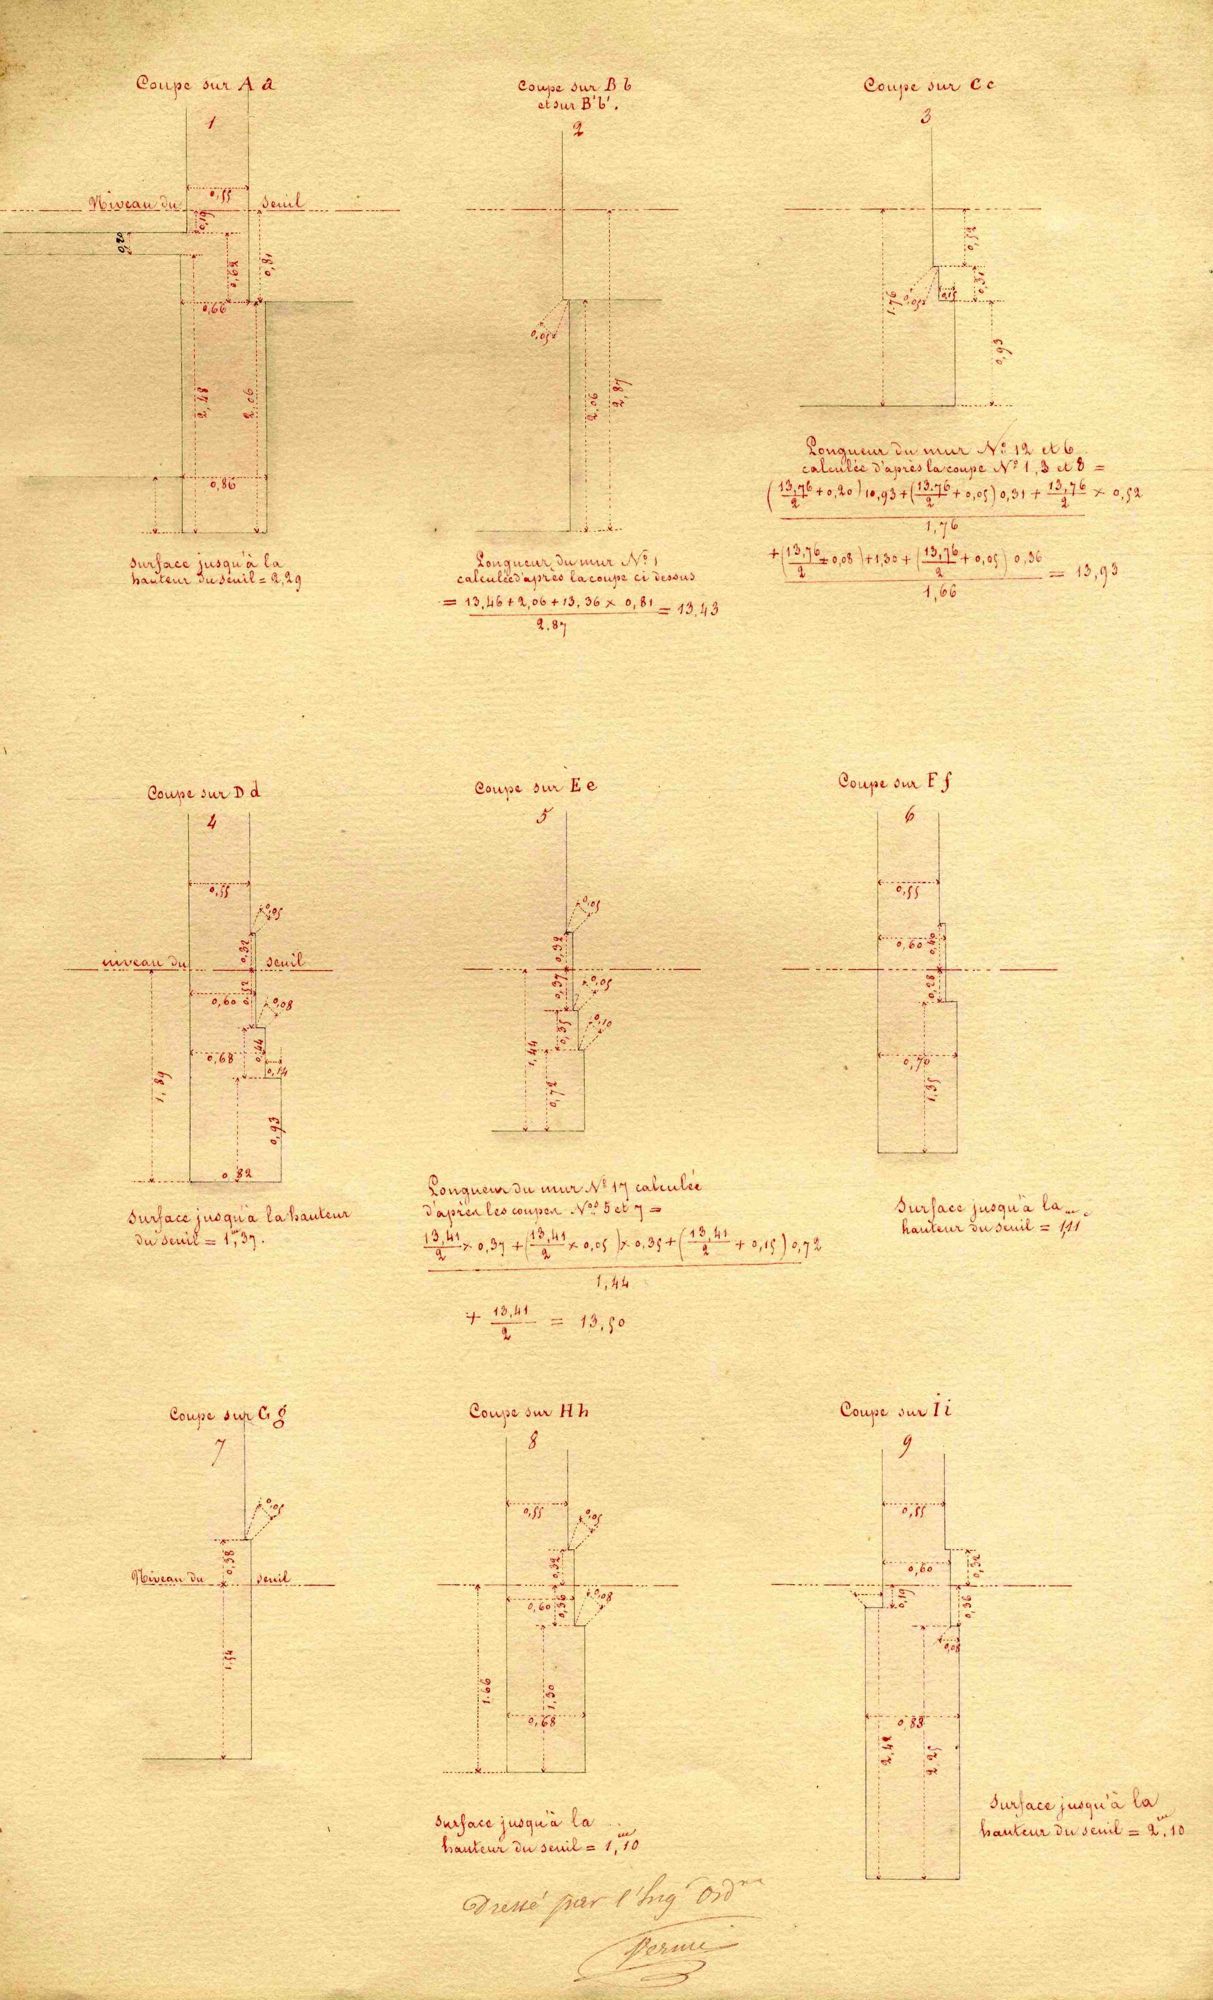 Coupe sur A a
1
0,55
Niveau du seuil
0,19
0,20
0,62
0,81
0,66
2,48
2,06
0,86
Surface jusqu'à la
hauteur du seuil = 2,29
Coupe sur B b
et sur B'b'.
2
0,05
2,06
2,87
Longueur du mur No 1
calculée d'après la coupe ci dessus
= 13,46 + 2,06 + 13,36 × 0,81 = 13,43
2.87
Coupe sur C c
3
0,52
0,31
0,15
0,05
1,76
0,93
Longueur du mur No 12 et 6
calculée d'après la coupe No 1, 3 et 8 =
(13,76/2 + 0,20) 10,93 + (13.76/2 + 0,05) 0,31 + 13,76/2 × 0,52
1,76
+ (13,76/2 ± 0,08) + 1,30 + (13,76/2 + 0,05) 0,36 = 13,93
1,66
Coupe sur D d
4
0,55
0,05
0,32
niveau du seuil
0,52
0,60
0,08
0,44
0,68
0,14
1,89
0,93
0,82
Surface jusqu'à la hauteur
du seuil = 1,m37.
Coupe sur E e
5
0,05
0,32
0,37
0,05
0,35
0,10
1,44
0,72
Longueur du mur No 17 calculée
d'après les coupes Nos 5 et 7 =
13,41/2 × 0,37 + (13,41/2 × 0,05) × 0,35 + (13,41/2 + 0,15) 0,72
1,44
+ 13,41/2 = 13,50
Coupe sur F f
6
0,55
0,60
0,40
0,28
0,70
1,35
Surface jusqu'à la
hauteur du seuil = 1,11
Coupe sur G g
7
0,05
0,38
Niveau du seuil
1,54
Coupe sur H h
8
0,55
0,05
0,32
0,60
0,36
0,08
1.66
1,30
0,68
Surface jusqu'à la
hauteur du seuil = 1,m10
Coupe sur I i
9
0,55
0,60
0,32
0,19
0,36
0,08
0,83
2,42
2,25
Surface jusqu'à la
hauteur du seuil = 2,m10
Dressé par l'Ingr Ordre